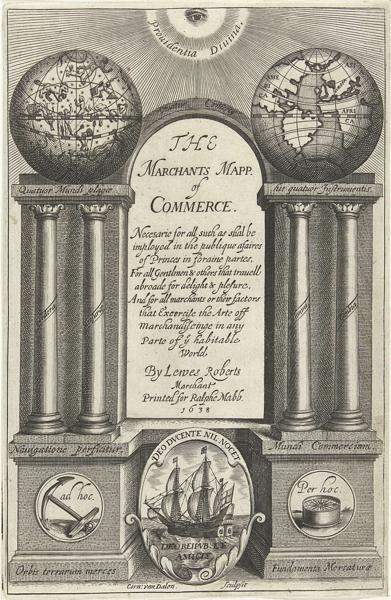 Providentia Divina.
ASI
AFRI
Quatuor Mundi plagæ
his quatuor Instrumentis.
THE
MARCHANTS MAPP.
of
COMMERCE.
Necesarie for all such as shal be
imployed in the publique afaires
of Princes in foraine partes,
For all Gentlmen & others that travell
abroade for delight & plesure,
And for all marchants or their factors
that Exercise the Arte off
Marchandiseinge in any
Parte of ẏ habitable
World,
By Lewes Roberts
Marchant
Printed for Ralphe Mabb.
1638
Navigatione perficitur,
Mundi Commercium.
DEO DVCENTE NIL NOCET
DEO REIPVB: ET
AMICIS
ad hoc.
Per hoc.
Orbis terrarum merces
Fundamenta Mercaturæ
Corn: van Dalen.
Sculpsit